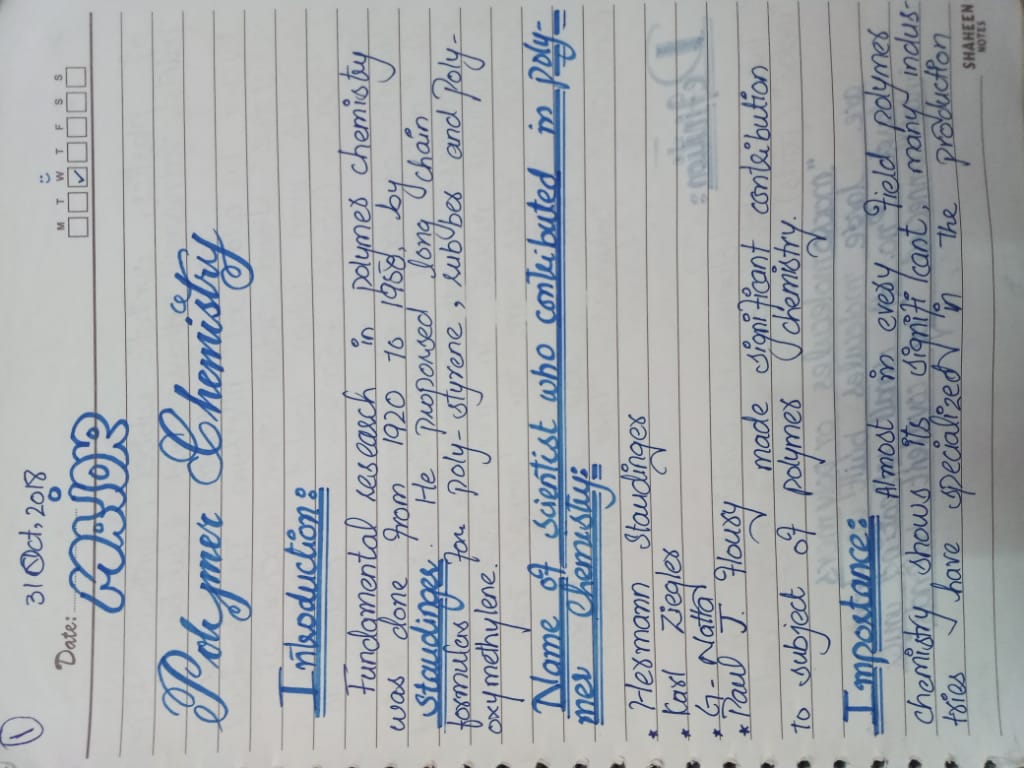 1
Date: 31 Oct, 2018
M T W T F S S
Major
Polymer Chemistry
Introduction:
Fundamental research in polymer chemistry
was done from 1920 to 1950, by
Staudinger. He proporsed long chain
formulas for poly-styrene, rubber and Poly-
oxymethylene.
Name of scientist who contributed in poly-
mer Chemistry:
* Hermann Staudinger
* Karl Ziegler
* G-Natta
* Paul J. Floury
made significant contribution
to subject of polymer chemistry.
Importance: Almost in every field polymer
chemistry shows its significant many indus-
tries have specialized in the production
SHAHEEN
NOTES
Definition: